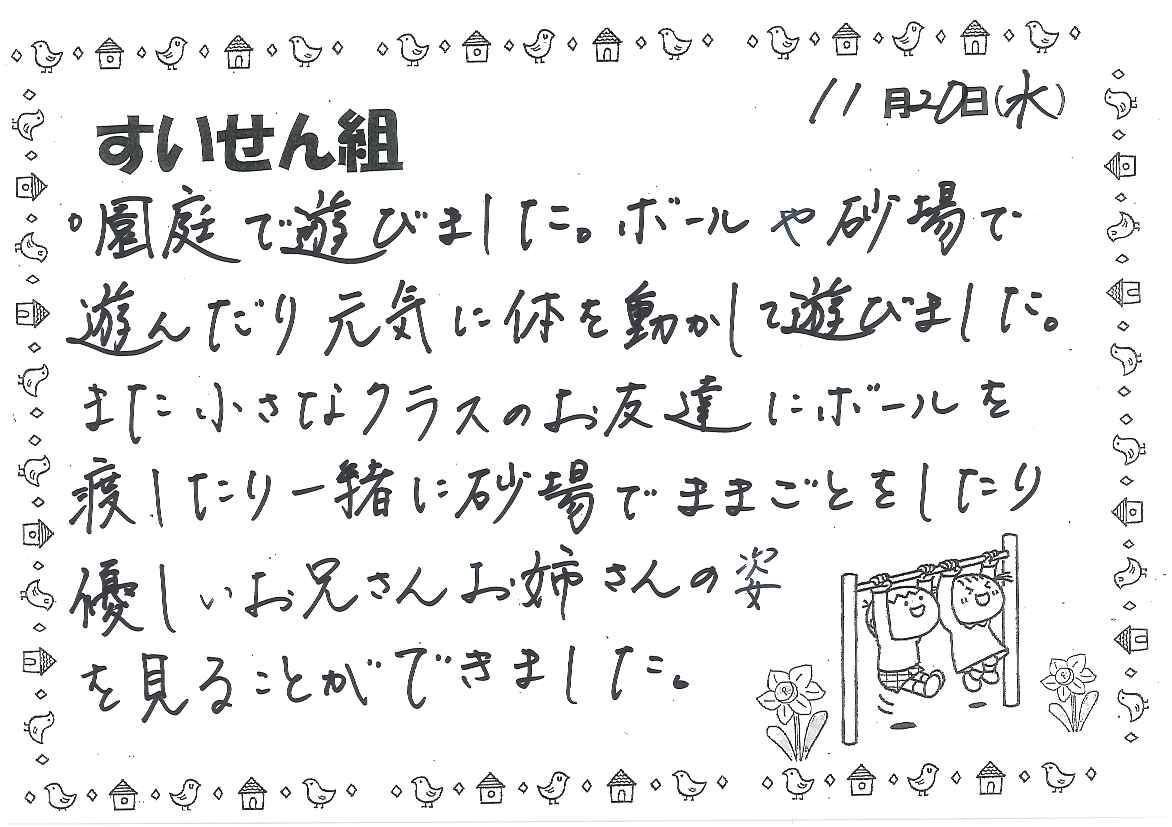 11月20日(水)
すいせん組
。園庭で遊びました。ボールや砂場で
遊んだり元気に体を動かして遊びました。
また小さなクラスのお友達にボールを
渡したり一緒に砂場でままごとをしたり
優しいお兄さんお姉さんの姿
を見ることができました。